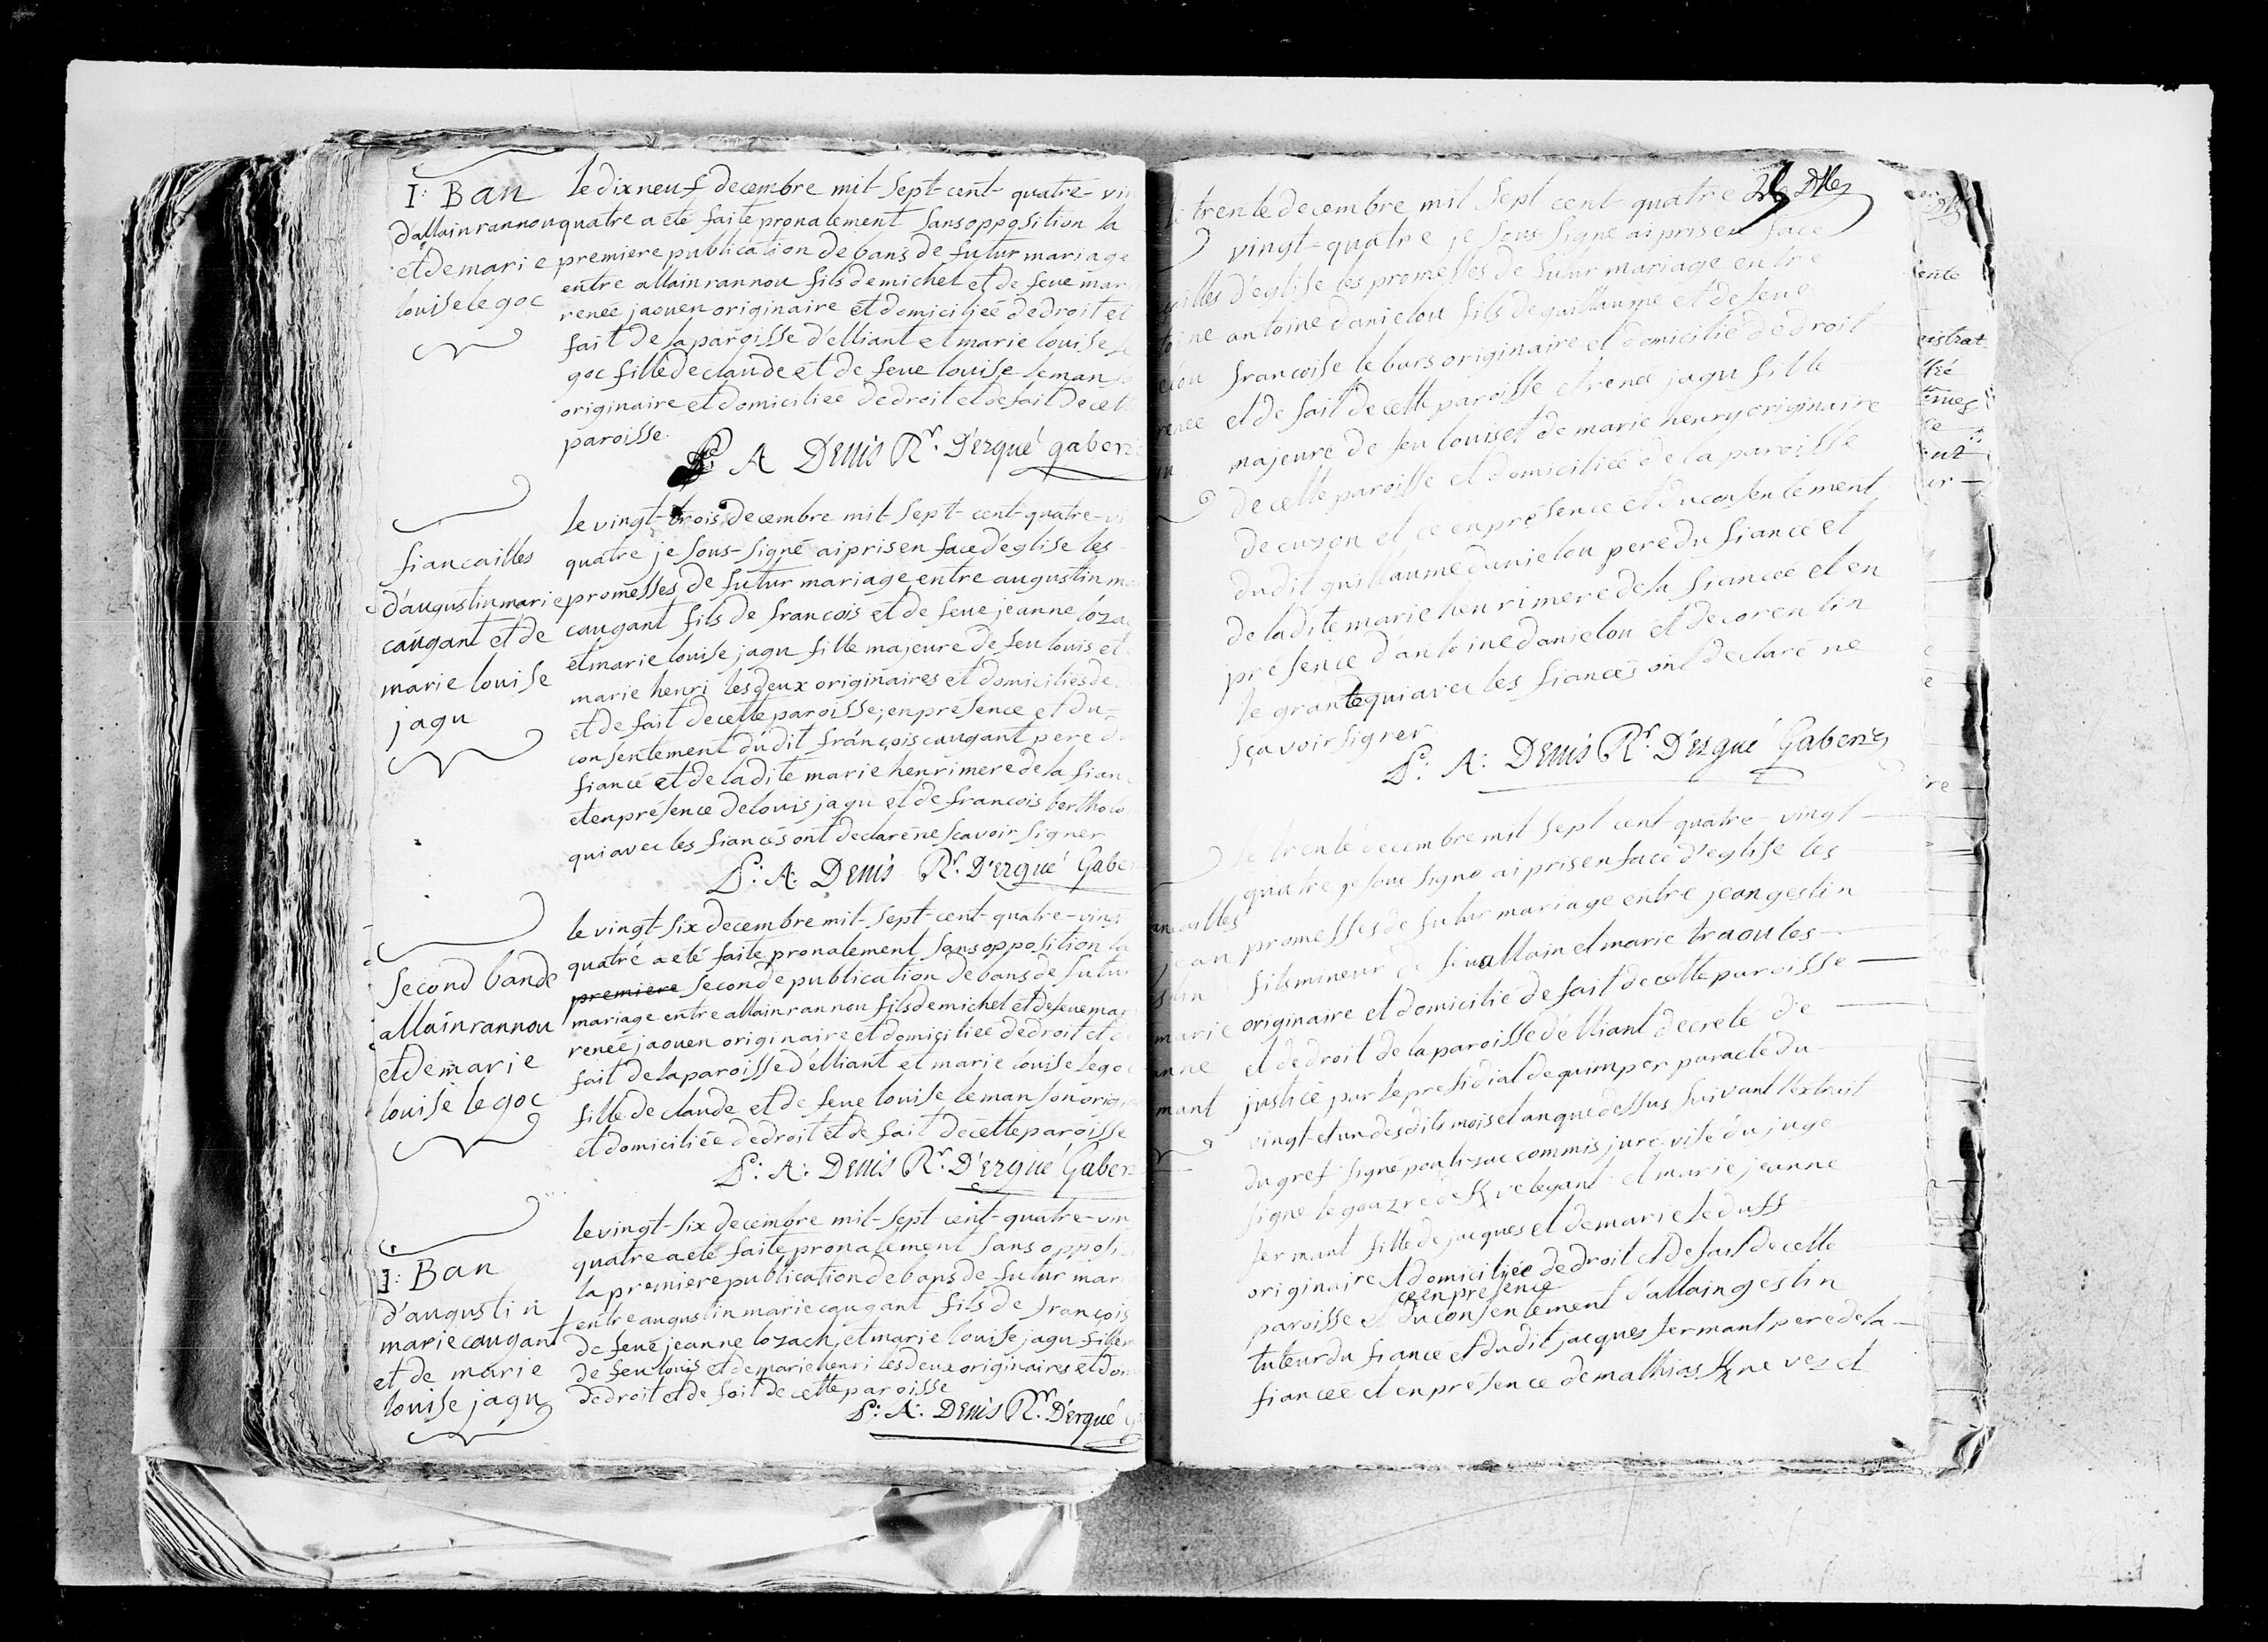 I: Ban
d'allain rannou
et de marie
louise le goc
le dix neuf decembre mil sept cent quatre-vin
quatre a eté faite pronalement sans opposition la
premiere publication de bans de futur mariage
entre allain rannou fils de michel et de feue mar
renée jaouen originaire et domiciliée de droit et
fait de la paroisse d'elliant et marie louise le
goc fille de claude et de feue louise le man
originaire et domiciliée de droit et de fait de cett
paroisse.
A Denis Rr. D'ergué gaberi
fiancailles
d'augustin marie
caugant et de
marie louise
jagu
le vingt-trois decembre mil sept cent quatre-vi
quatre je sous-signé ai pris en face d'eglise les
promesses de futur mariage entre augustin ma
caugant fils de francois et de feue jeanne loza
et marie louise jagu fille majeure de feu louis et
marie henri les deux originaires et domiciliés de
et de fait de cette paroisse; en présence et du
consentement du dit françois caugant pere du
fiancé et de la dite marie henri mere de la fian
et en présence de louis jagu et de francois bertholo
qui avec les fiancés ont declaré ne scavoir signer
A: Denis Rr. D'ergué Gabe
second ban de
allain rannou
et de marie
louise le goc
le vingt-six decembre mil sept cent quatre-vingt
quatre a eté faite pronalement sans opposition la
premiere seconde publication de bans de futur
mariage entre allain rannou fils de michel et de feue mar
renée jaouen originaire et domiciliée de droit et d
fait de la paroisse d'elliant et marie louise le goc
fille de claude et de feue louise le manson orig
et domiciliée de droit et de fait de cette paroisse
A: Denis Rr. D'ergué Gaber
I: Ban
d'augustin
marie caugant
et de marie
louise jagu
le vingt-six decembre mil sept cent quatre-vin
quatre a eté faite pronalement sans opposi
la premiere publication de bans de futur mar
entre augustin marie caugant fils de françois
de feue jeanne lozach et marie louise jagu fille
de feu louis et de marie henri les deux originaires et dom
de droit et de fait de cette paroisse
A: Denis Rr. D'ergué
trente decembre mil sept cent quatre
vingt-quatre je sous-signé ai pris en face
d'eglise les promesses de futur mariage entre
antoine danielou fils de guillaume et de feue
francoise le bars originaire et domicilié de droit
et de fait de cette paroisse et renée jagu fille
majeure de feu louis et de marie henry originaire
de cette paroisse et domiciliée de la paroisse
de cuzon et ce en présence et du consentement
du dit guillaume danielou pere du fiancé et
de la dite marie henri mere de la fiancée et en
présence d'antoine danielou et de corentin
le grante qui avec les fiancés ont declaré ne
sçavoir signer
A: Denis Rr. D'ergué Gaberic
le trente decembre mil sept cent quatre-vingt
quatre je sous signé ai pris en face d'eglise les
promesses de futur mariage entre jean gestin
fils mineur de feu allain et marie traoules
originaire et domicilié de fait de cette paroisse
et de droit de la paroisse d'elliant decreté de
justice par le presidial de quimper par acte du
vingt-et-un des dits mois et an que dessus suivant l'extrait
du gref signé commis juré visé du juge
signé le gouzre de et marie jeanne
fermant fille de jacques et de marie le duff
originaire et domiciliée de droit et de fait de cette
ce en présence
paroisse et du consentement d'allain gestin
tuteur du fiancé et du dit jacques fermant pere de la
fiancée et en présence de mathias Kne vez et